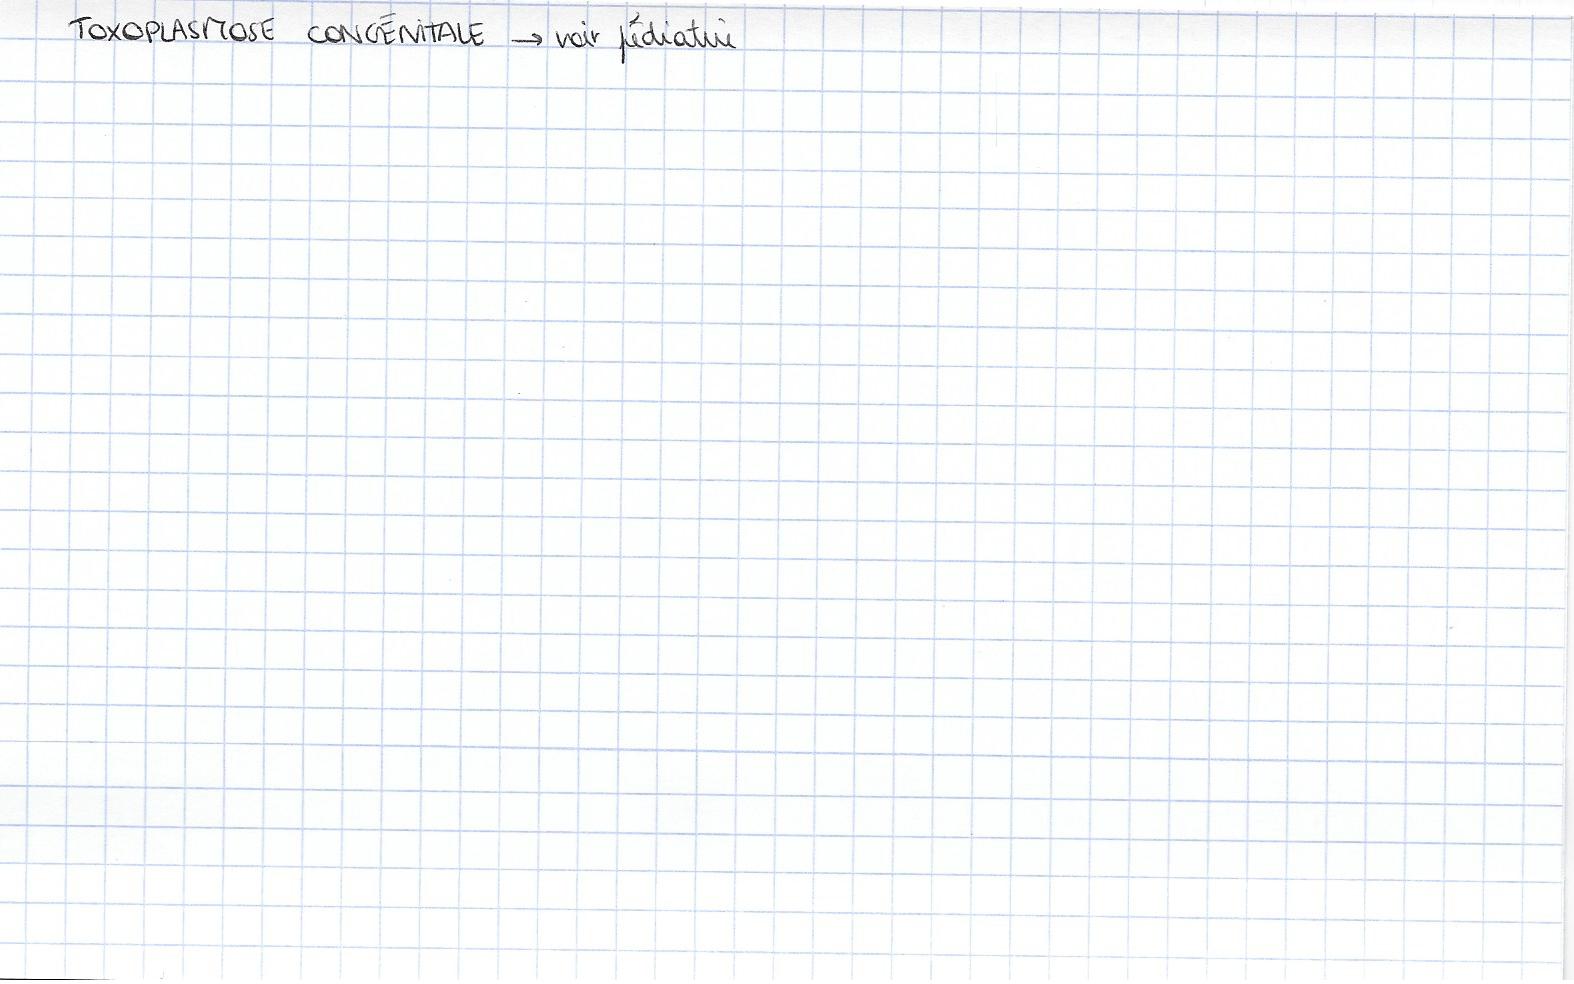 TOXOPLASMOSE CONGÉNITALE → voir pédiatrie